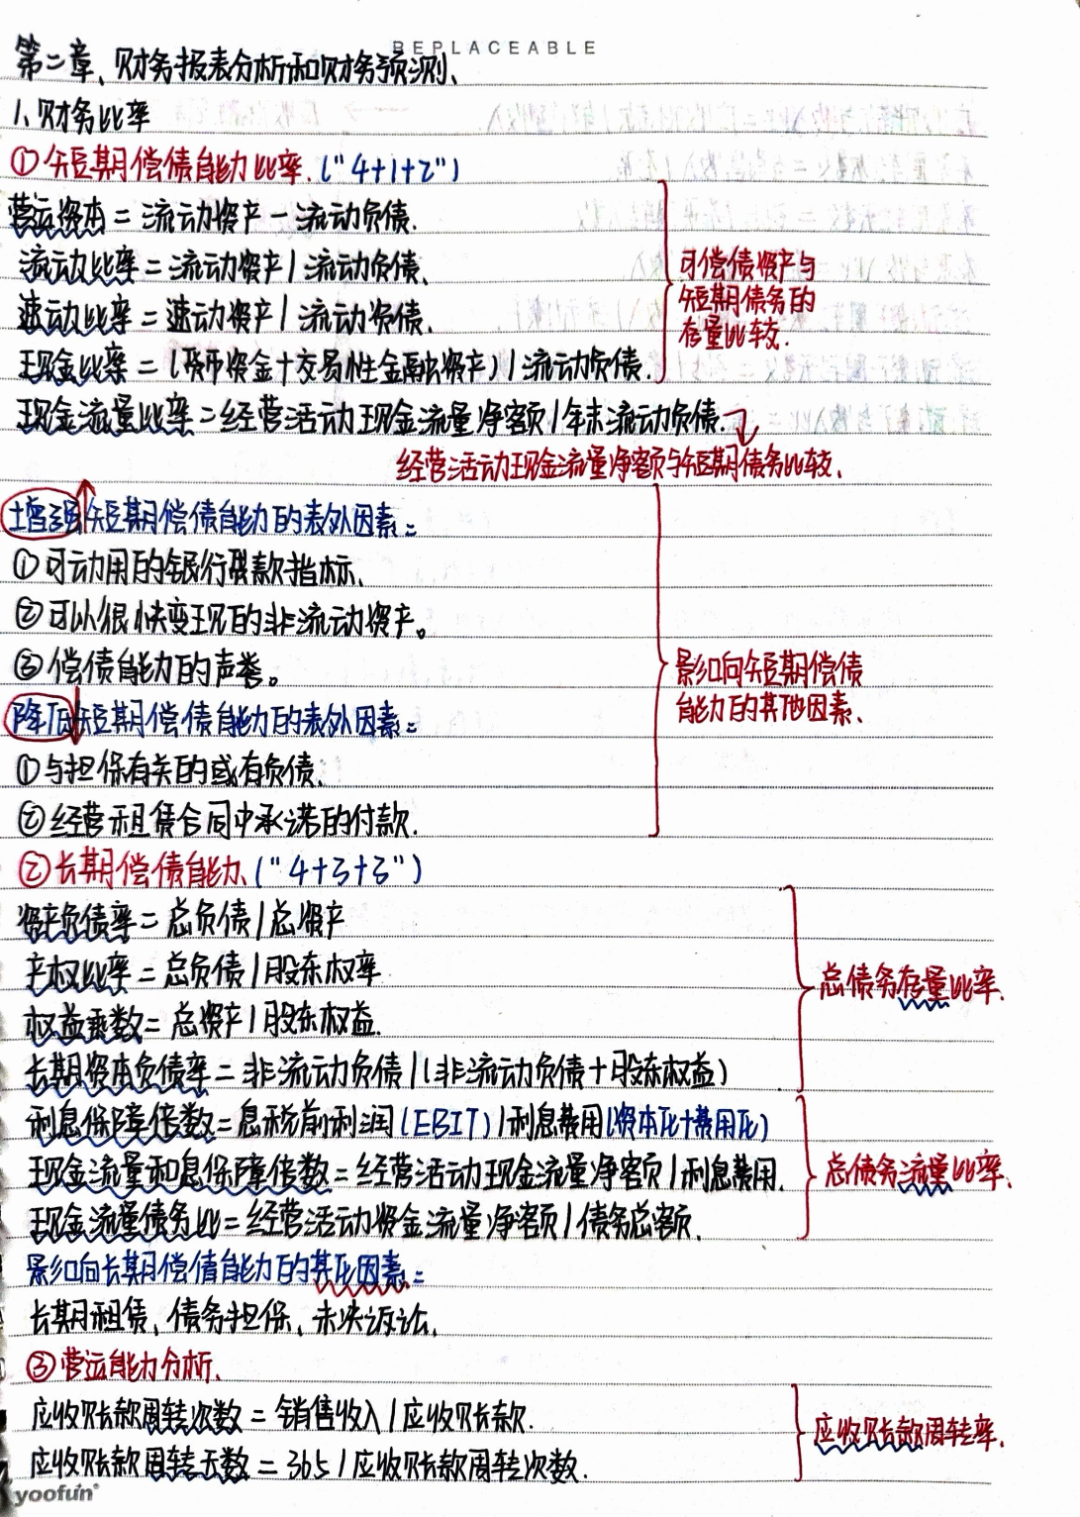 REPLACEABLE
第二章、财务报表分析和财务预测、
1、财务比率
①短期偿债能力比率.("4+1+2")
营运资本=流动资产-流动负债.
流动比率=流动资产/流动负债、
速动比率=速动资产/流动负债.
现金比率=(货币资金+交易性金融资产)/流动负债.
可偿债资产与
短期债务的
存量比较.
现金流量比率=经营活动现金流量净额/年末流动负债.
经营活动现金流量净额与短期债务比较.
增强短期偿债能力的表外因素:
①可动用的银行贷款指标、
②可以很快变现的非流动资产。
③偿债能力的声誉。
降低短期偿债能力的表外因素:
①与担保有关的或有负债、
②经营租赁合同中承诺的付款.
影响短期偿债
能力的其他因素、
②长期偿债能力、("4+3+3")
资产负债率=总负债/总资产
产权比率=总负债/股东权率
权益乘数=总资产/股东权益.
长期资本负债率=非流动负债/(非流动负债+股东权益)
总债务存量比率.
利息保障倍数=息税前利润(EBIT)/利息费用(资本化+费用化)
现金流量利息保障倍数=经营活动现金流量净额/利息费用.
现金流量债务比=经营活动资金流量净额/债务总额.
总债务流量比率、
影响长期偿债能力的其他因素:
长期租赁、债务担保、未决诉讼.
③营运能力分析、
应收账款周转次数=销售收入/应收账款.
应收账款周转天数=365/应收账款周转次数.
应收账款周转率.
yoofun